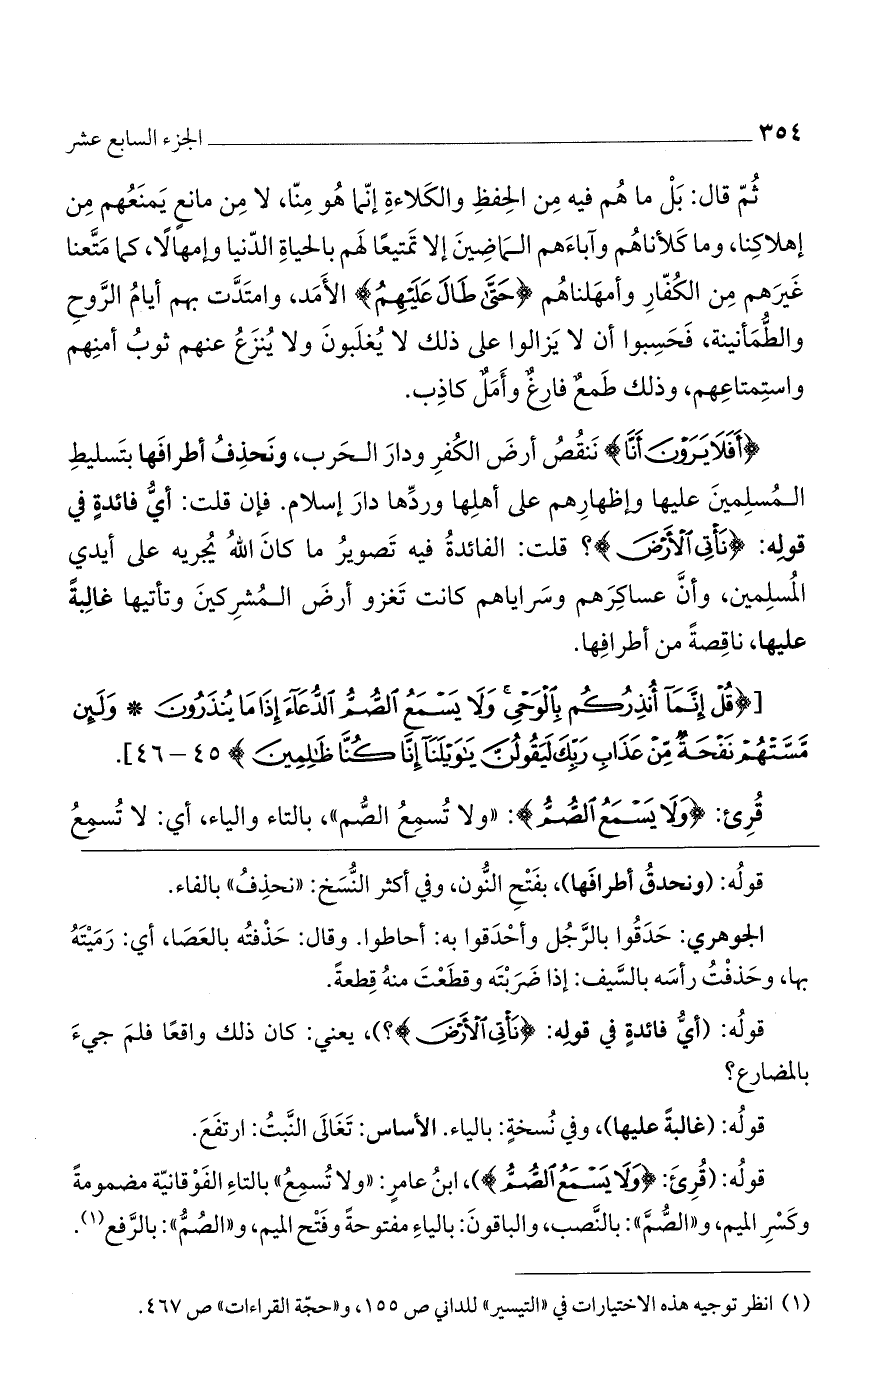 ٣٥٤ الجزء السابع عشر
ثُمّ قال: بَلْ ما هُم فيه مِن الحِفظِ والكَلاءةِ إنّما هُو مِنّا، لا مِن مانعٍ يَمنَعُهم مِن
إهلاكِنا، وما كَلأناهُم وآباءَهم الماضِينَ إلا تَمتيعًا لَهم بالحياةِ الدّنيا وإمهالًا، كما مَتَّعنا
غَيرَهم مِن الكُفّارِ وأمهَلناهُم ﴿حَتَّىٰ طَالَ عَلَيْهِمُ﴾ الأمَد، وامتَدَّت بهم أيامُ الرَّوحِ
والطُّمَأنينة، فَحَسِبوا أن لا يَزالوا على ذلك لا يُغلَبونَ ولا يُنزَعُ عنهم ثوبُ أمنِهم
واستِمتاعِهم، وذلك طَمعٌ فارِغٌ وأَمَلٌ كاذِب.
﴿أَفَلَا يَرَوْنَ أَنَّا﴾ نَنقُصُ أرضَ الكُفرِ ودارَ الحَرب، ونَحذِفُ أطرافَها بتَسليطِ
المُسلِمينَ عليها وإظهارِهم على أهلِها وردِّها دارَ إسلام. فإن قلت: أيُّ فائدةٍ في
قولِه: ﴿نَأْتِي ٱلْأَرْضَ﴾؟ قلت: الفائدةُ فيه تَصويرُ ما كانَ اللهُ يُجريه على أيدي
المُسلِمين، وأنَّ عساكِرَهم وسَراياهم كانت تَغزو أرضَ المُشرِكينَ وتأتيها غالِبةً
عليها، ناقِصةً من أطرافِها.
[﴿قُلْ إِنَّمَآ أُنذِرُكُم بِٱلْوَحْيِ ۚ وَلَا يَسْمَعُ ٱلصُّمُّ ٱلدُّعَآءَ إِذَا مَا يُنذَرُونَ * وَلَئِن
مَّسَّتْهُمْ نَفْحَةٌ مِّنْ عَذَابِ رَبِّكَ لَيَقُولُنَّ يَٰوَيْلَنَآ إِنَّا كُنَّا ظَٰلِمِينَ﴾ ٤٥ – ٤٦].
قُرِئ: ﴿وَلَا يَسْمَعُ ٱلصُّمُّ﴾: «ولا تُسمِعُ الصُّم»، بالتاء والياء، أي: لا تُسمِعُ
قولُه: (ونحدقُ أطرافَها)، بفَتْحِ النُّون، وفي أكثر النُّسَخ: «نحذِفُ» بالفاء.
الجوهري: حَدَقُوا بالرَّجُل وأحْدَقوا به: أحاطوا. وقال: حَذَفْتُه بالعَصَا، أي: رَمَيْتَهُ
بها، وحَذفْتُ رأسَه بالسَّيف: إذا ضَرَبْتَه وقطَعْتَ منهُ قِطعةً.
قولُه: (أيُّ فائدةٍ في قولِه: ﴿نَأْتِي ٱلْأَرْضَ﴾؟)، يعني: كان ذلك واقعًا فلمَ جيءَ
بالمضارع؟
قولُه: (غالبةً عليها)، وفي نُسخةٍ: بالياء. الأساس: تَغَالَى النَّبتُ: ارتفَعَ.
قولُه: (قُرِئَ: ﴿وَلَا يَسْمَعُ ٱلصُّمُّ﴾)، ابنُ عامرٍ: «ولا تُسمِعُ» بالتاءِ الفَوْقانيّة مضمومةً
وكَسْرِ الميم، و«الصُّمَّ»: بالنَّصب، والباقونَ: بالياءِ مفتوحةً وفَتْح الميم، و«الصُمُّ»: بالرَّفع(١).
(١) انظر توجيه هذه الاختيارات في «التيسير» للداني ص ١٥٥، و«حجّة القراءات» ص ٤٦٧.